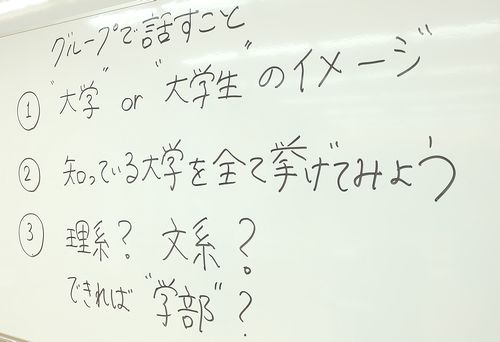 グループで話すこと
① "大学" or "大学生" のイメージ
② 知っている大学を全て挙げてみよう
③ 理系? 文系?
できれば "学部"?